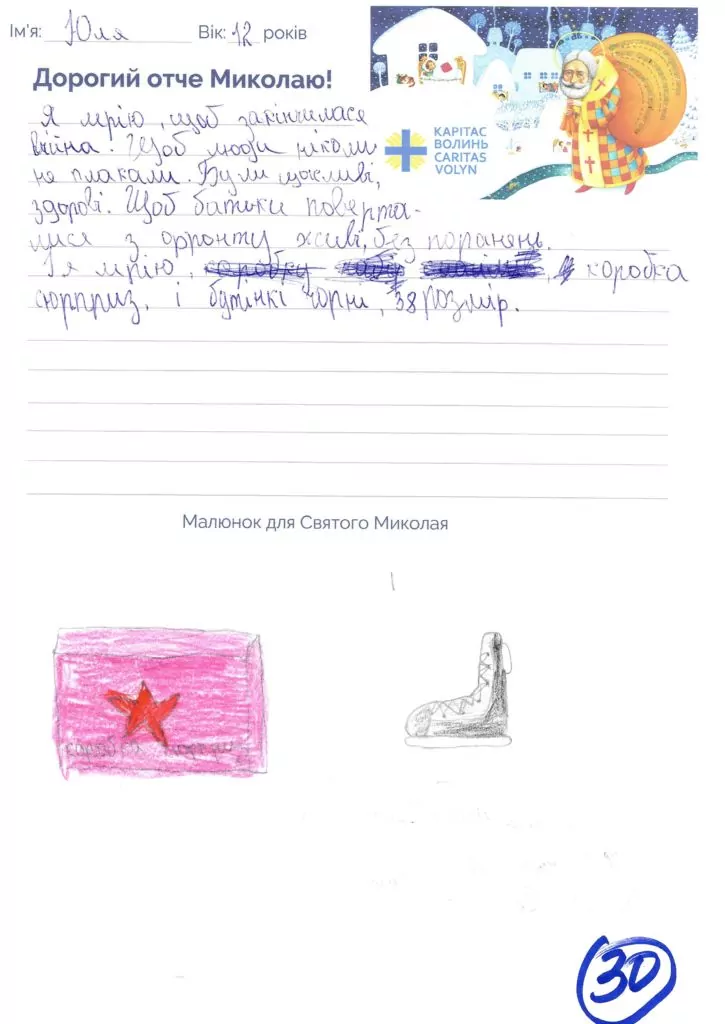 Ім'я: Юля Вік: 12 років
Дорогий отче Миколаю!
КАРІТАС
ВОЛИНЬ
CARITAS
VOLYN
Я мрію, щоб закінчилася
війна. Щоб люди ніколи
не плакали. Були щасливі,
здорові. Щоб батьки поверта-
лися з фронту живі, без поранень.
І я мрію, коробка
сюрприз. і ботінкі чорні, 38 розмір.
Малюнок для Святого Миколая
коробка сюрприз
30